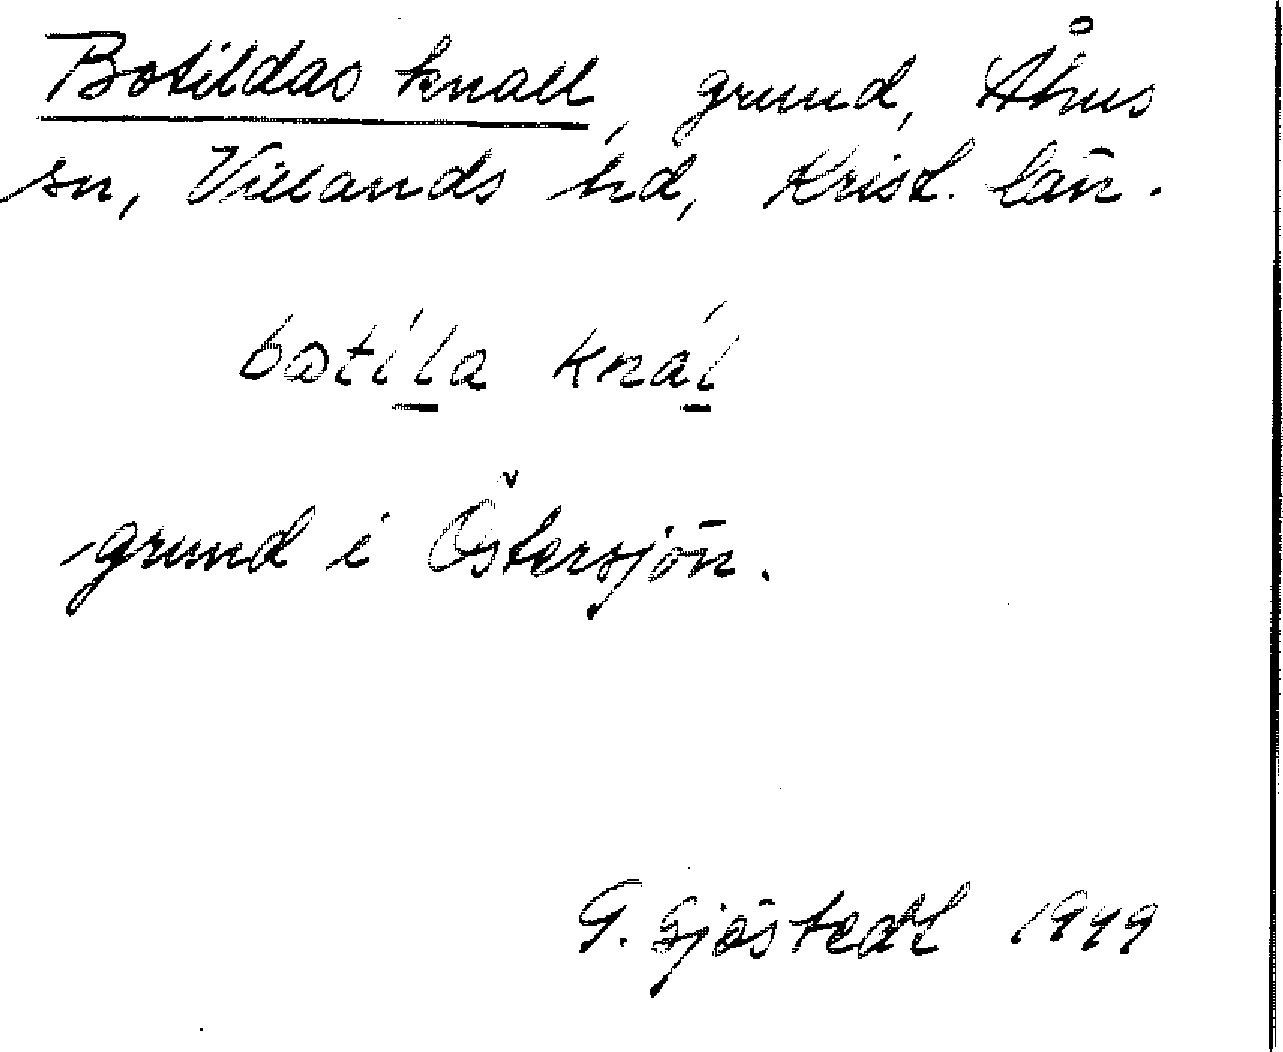 Botildas knall, grund, Åhus
sn, Villands hd, Krist. län.
botíla knál
grund i Östersjön.
G. Sjöstedt 1949